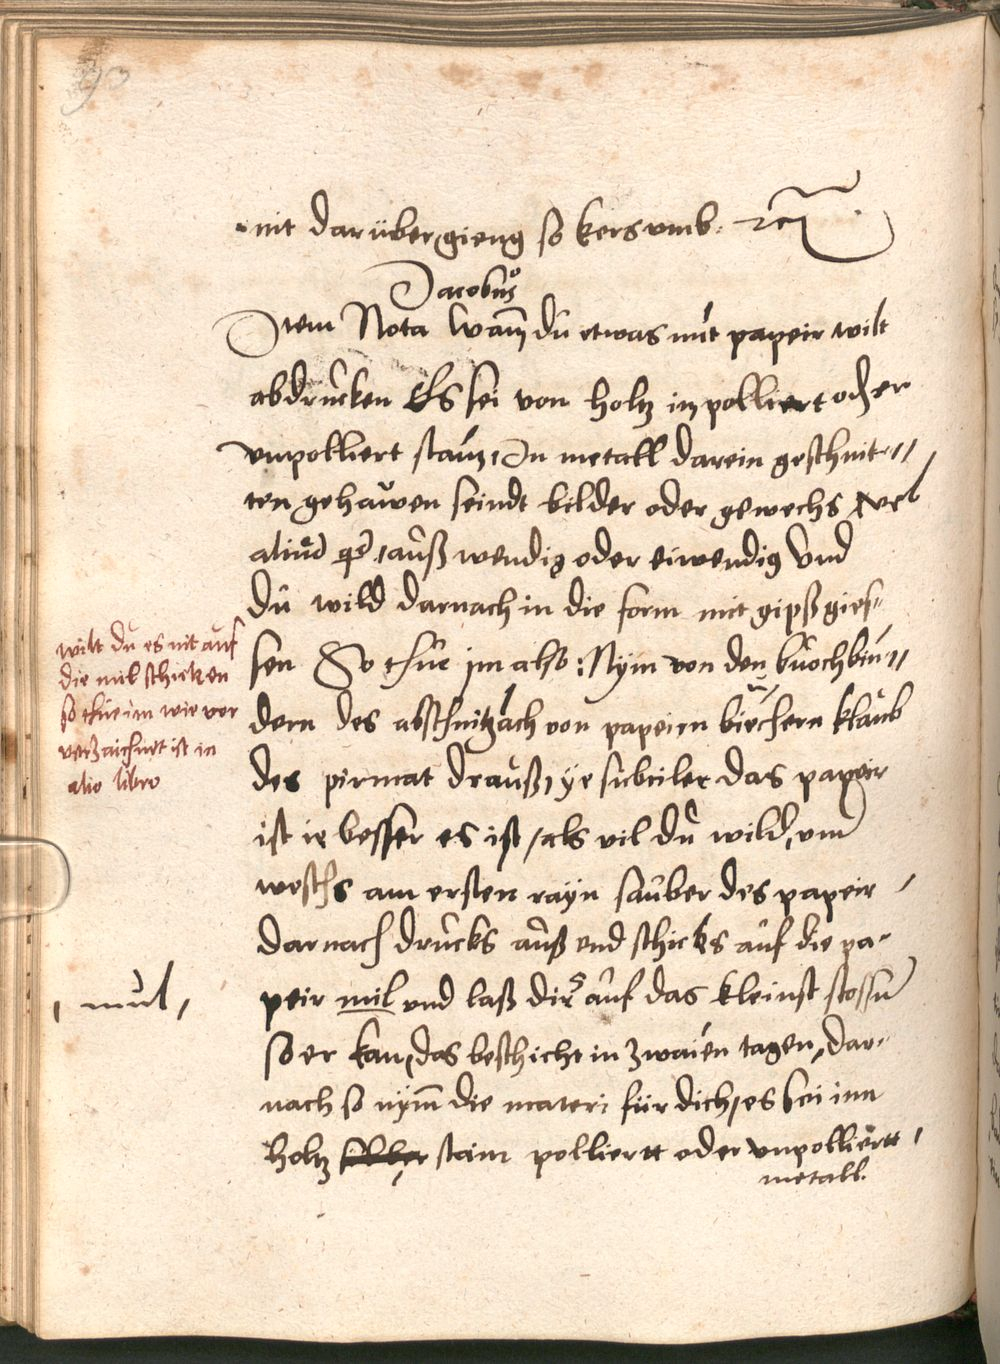 93
nit darüber gieng so kers umb. etc.
Jacobus
Item Nota Wann du etwas mit papeir wilt
abdrucken Es sei von holtz in polliert oder
unpolliert stain, In metall darein geschnit-
ten gehauwen seindt bilder oder gewechs vel
aliud quid, außwendig oder eiwendig Und
du wild darnach in die form mit gipß gies-
sen So thue im also: Nym von den buochbin-
dern des abschnitzach von papeirn biechern klaub
des pirmat drauß, ye subtiler das papeir
ist ie besser es ist, als vil du wild, unnd
weschs am ersten rayn sauber des papeir
darnach drucks auß und schicks auf die pa-
peir mil und laß dirs auf das kleinst stossen
so er kan, das beschicht in zwaien tagen, dar-
nach so nymm die materi für dich, es sei inn
holtz stain polliertt oder unpolliertt
metall.
wilt du es nit auf
die mil schicken
so thue im wie vor
verzaichnet ist in
alio libro
mul